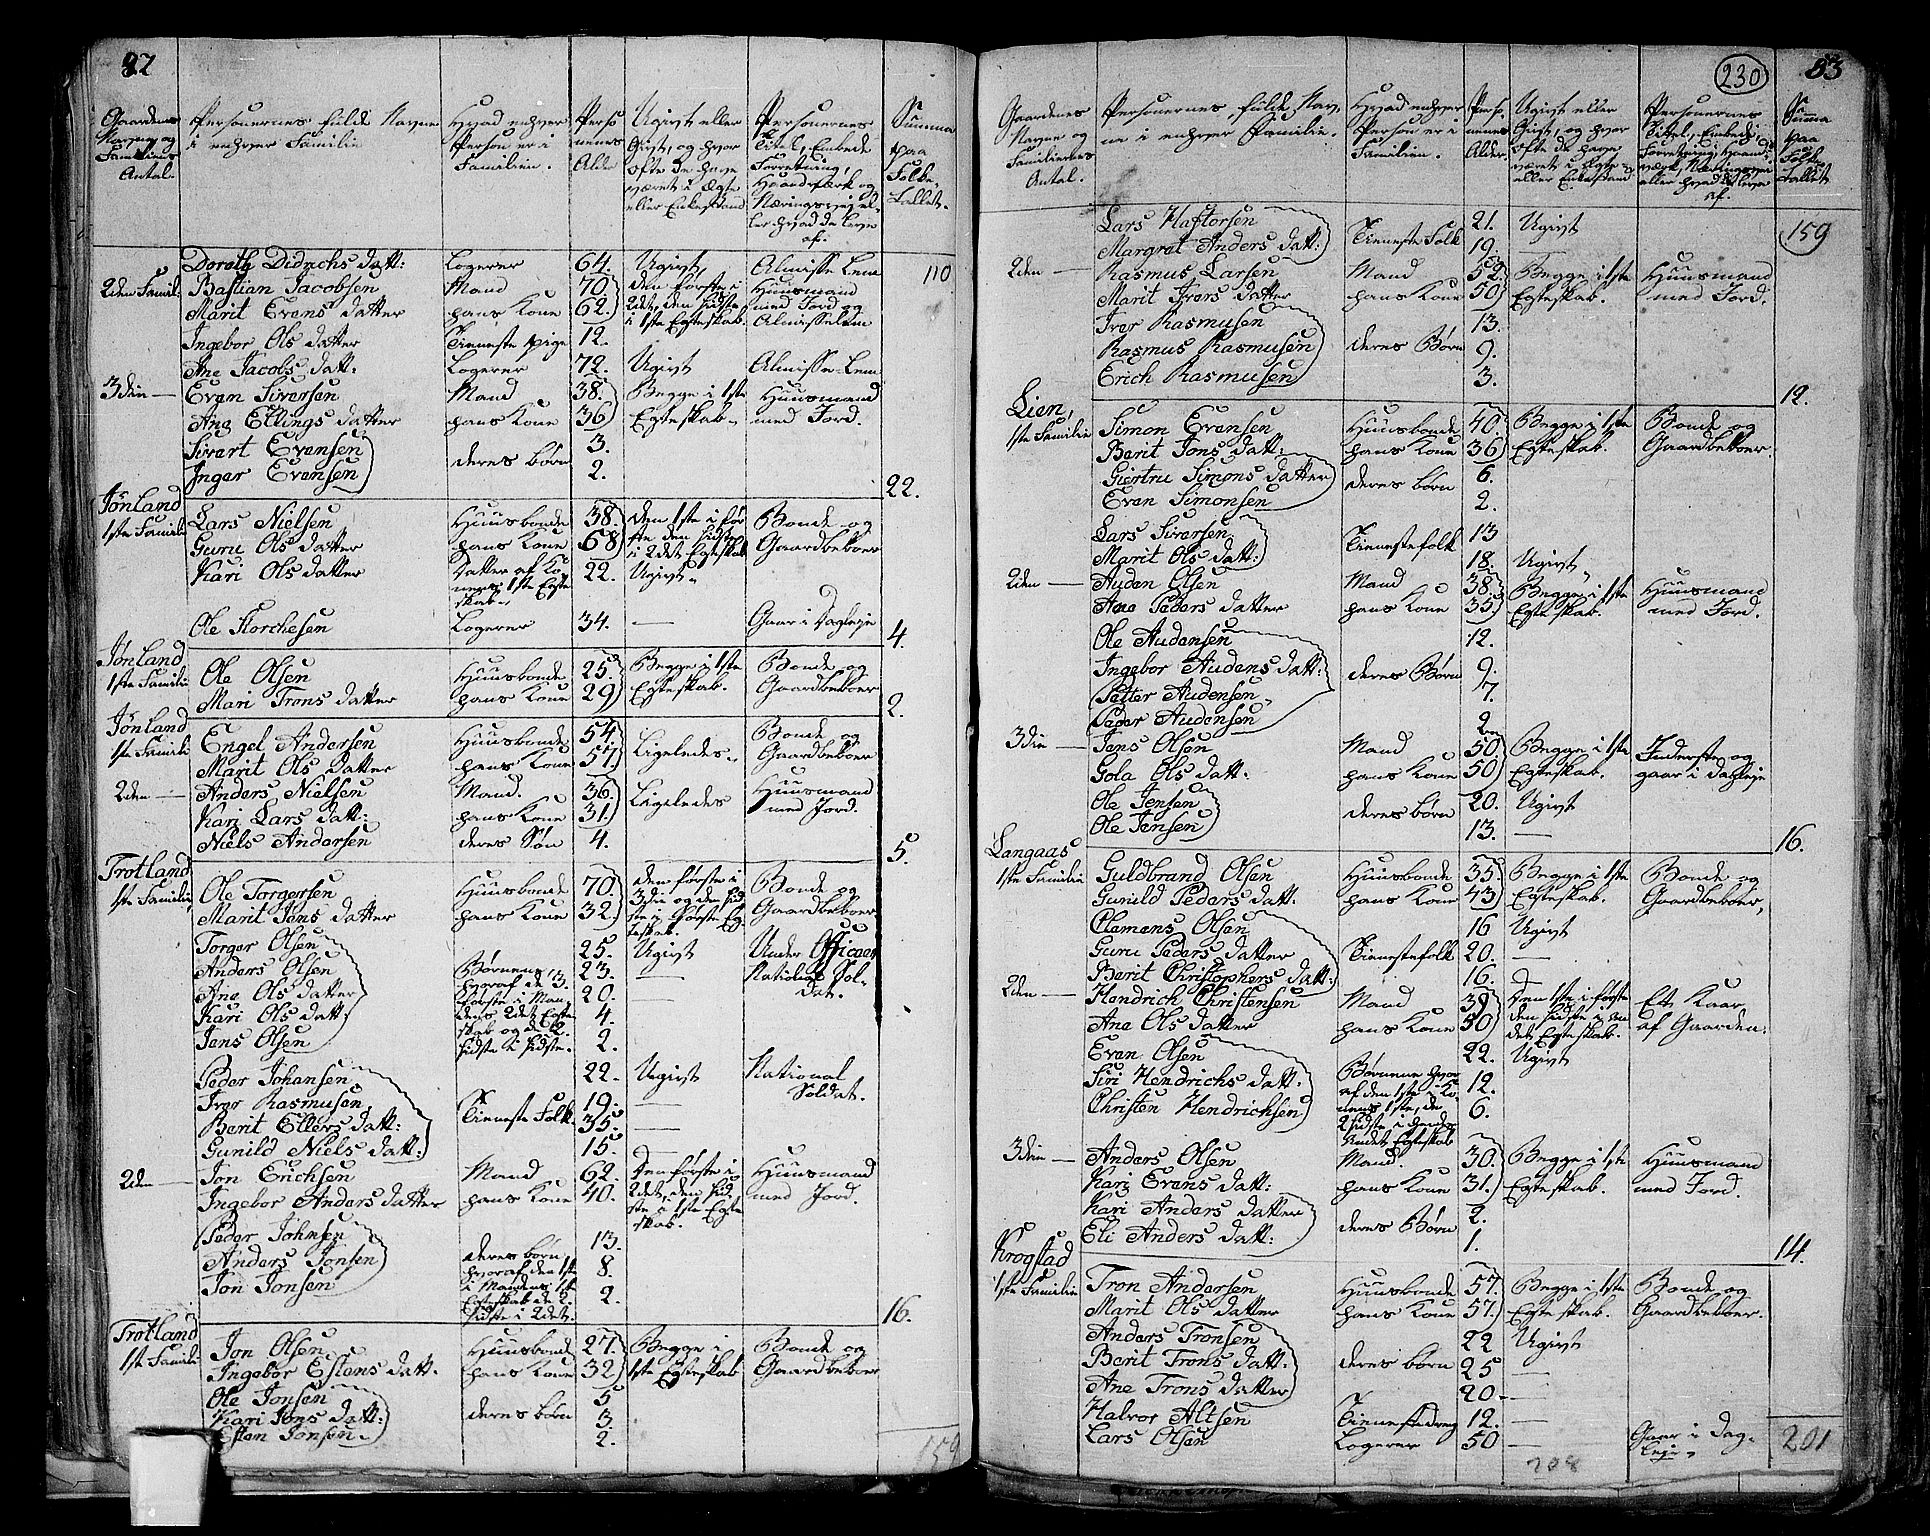 82
Gaardenes Navne og Familiens Antal.
Personernes fulde Navne i enhver Familie
Hvad enhver Person er i Familien.
Personernes Alder
Ugivt eller Givt, og hvor ofte de have været i Ægte eller Enkestand
Personernes Titel, Embede Forretning, Haandværk og Næringsvej eller hvad de leve af.
Summa paa Folke-Tallet.
Doroth Didrichs datt: Logerer 64. Ugivt, Almisse Lem 110
2den Famil: Bastian Jacobsen Mand 70 den første i Huusmand
Marit Evens datter hans Kone 62. 2det, den sidste i 1ste Egteskab. med Jord og Almisselem
Ingebor Ols datter Tieneste pige 12.
Ane Jacobs datt: Logerer 72. Ugivt Almisse-Lem
3die Even Siversen Mand 38. Begge i 1ste Huusmand
Ane Ellings datter hans Kone 36 Egteskab med Jord.
Sivert Evensen deres børn 3.
Inger Evensen 2.
22.
Jønland
1ste Familie Lars Nielsen Huusbonde 38. den 1ste i første den sidste Bonde og
Guru Ols datter hans Kone 68 i 2det Egteskab Gaardbeboer
Kari Ols datter Datter af Konens 1ste Egteskab 22. Ugivt
Ole Storchesen Logerer 34. — Gaar i Dagleje
4.
Jønland
1ste Familie Ole Olsen Huusbonde 25. Begge i 1ste Bonde og
Mari Trons datter hans Kone 29 Egteskab. Gaardbeboer
2.
Jønland
1ste Familie Engel Andersen Huusbonde 54. Ligeledes Bonde og
Marit Ols datter hans Kone 57. Gaardbeboer
2den Anders Nielsen Mand. 36. Ligeledes Huusmand
Kari Lars datt: hans Kone 31. med Jord.
Niels Andersen deres Søn 4.
5.
Trøtland
1ste Familie Ole Torgersen Huusbonde 70. den første i 3die og den sidste i første Egteskab. Bonde og
Marit Jens datter hans Kone 32. Gaardbeboer
Torger Olsen 25. Ugivt Under Officeer
Anders Olsen Børnene, hvoraf de 3 23. — National Soldat.
Ane Ols datter første i Mandens 2det Egteskab 20.
Kari Ols datt: og de 2 4.
Jens Olsen sidste i sidste. 2.
Peder Johansen 22. Ugivt National Soldat.
Iver Rasmusen Tieneste Folk 19. —
Berit Ellers datt: 35. —
Gunild Niels datt: 15. —
2den Jon Erichsen Mand 62. Den første i Huusmand
Ingebor Anders datter hans Kone 40. 2det, den sidste i 1ste Egteskab. med Jord.
Peder Johnsen deres børn 13.
Anders Jonsen hvoraf den 1ste i Mandens 1ste 8.
Jon Jonsen Egteskab de 2 sidste i 2det. 2.
16.
Trøtland
1ste Familie Jon Olsen Huusbond 27. Begge i Bonde og
Ingebor Estens datt. hans Kone 32 1ste Egteskab Gaardbeboer
Ole Jonsen 5
Kari Jons datt: deres børn 3.
Esten Jonsen 2.
159
230
83
Gaardenes Navne og Familiernes Antal.
Personernes fulde Navne i enhver Familie.
Hvad enhver Person er i Familien.
Personernes Alder.
Ugivt eller Givt, og hvor ofte de have været i Ægte- eller Enkestand
Personernes Titel, Embede, Forretning, Haandværk, Næringsvej eller hvad de leve af.
Summa paa Folke Tallet
Lars Haftorsen Tieneste Folk 21. Ugivt 159
Margret Anders datt: 19.
2den Rasmus Larsen Mand 52. Begge i 1ste Huusmand
Marit Ivers datter hans Kone 50 Egteskab. med Jord.
Iver Rasmusen 13.
Rasmus Rasmusen deres Børn 9.
Erich Rasmusen 3.
12.
Lien,
1ste Familie Simon Evensen Huusbonde 40. Begge i 1ste Bonde og
Berit Jons datt: hans Kone 36 Egteskab. Gaardbeboer.
Giertru Simons datter deres børn 6.
Even Simonsen 2.
Lars Siversen Tienestefolk 13
Marit Ols datt: 18. Ugivt
2den Auden Olsen Mand 38. Begge i 1ste Huusmand
Ane Peders datter hans Kone 35 Egteskab. med Jord.
Ole Audensen 12.
Ingebor Audens datt: deres Børn 9.
Petter Audensen 7.
Peder Audensen 2
3die Jens Olsen Mand 50 Begge i 1ste Inderste og
Gola Ols datt: hans Kone 50 Egteskab. gaar i dagleje
Ole Jensen deres børn 20. Ugivt
Ole Jensen 13. —
16.
Langaas
1ste Familie Guldbrand Olsen Huusbonde 35. Begge i 1ste Bonde og
Gunild Peders datt: hans Kone 43 Egteskab. Gaardbeboer,
Clemens Olsen 16 Ugivt
Guru Peders datter Tienestefolk 20. —
Berit Christophers datt: 16. —
2den Hendrich Christensen Mand 39 Den 1ste i første Et Kaar
Ane Ols datter hans Kone 50 den sidste i andet Egteskab. af Gaarden.
Even Olsen Børnene hvoraf 22. Ugivt
Siri Hendrichs datt: den 1ste i Konens 1ste, de 12.
Christen Hendrichsen 2 sidste i deres Andet Egteskab 6.
3die Anders Olsen Mand. 30. Begge i 1ste Huusmand
Kari Evens datt: hans Kone 31. Egteskab. med Jord.
Kari Anders datter deres Børn 2.
Eli Anders datt: 1.
14.
Krogstad
1ste Familie Tron Andersen Huusbonde 57. Begge i 1ste Bonde og
Marit Ols datter hans Kone 57. Egteskab. Gaardbeboer.
Anders Tronsen 22 Ugivt
Berit Trons datt: deres børn 25 —
Ane Trons datter 20 —
Halvor Altsen Tienestedreng 12. —
Lars Olsen Logerer 50 — Gaar i Dagleje
201
208